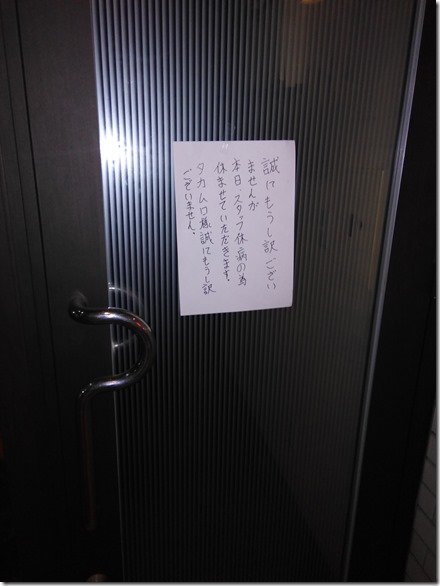 誠にもうし訳ござい
ませんが
本日、スタッフ休病の為
休ませていただきます。
タカムロ様誠にもうし訳
ございません。